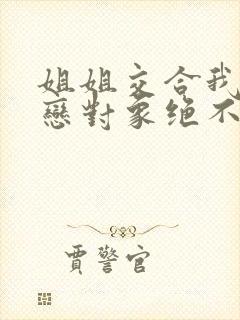 姐姐交合我
戀對象绝不
賈警官